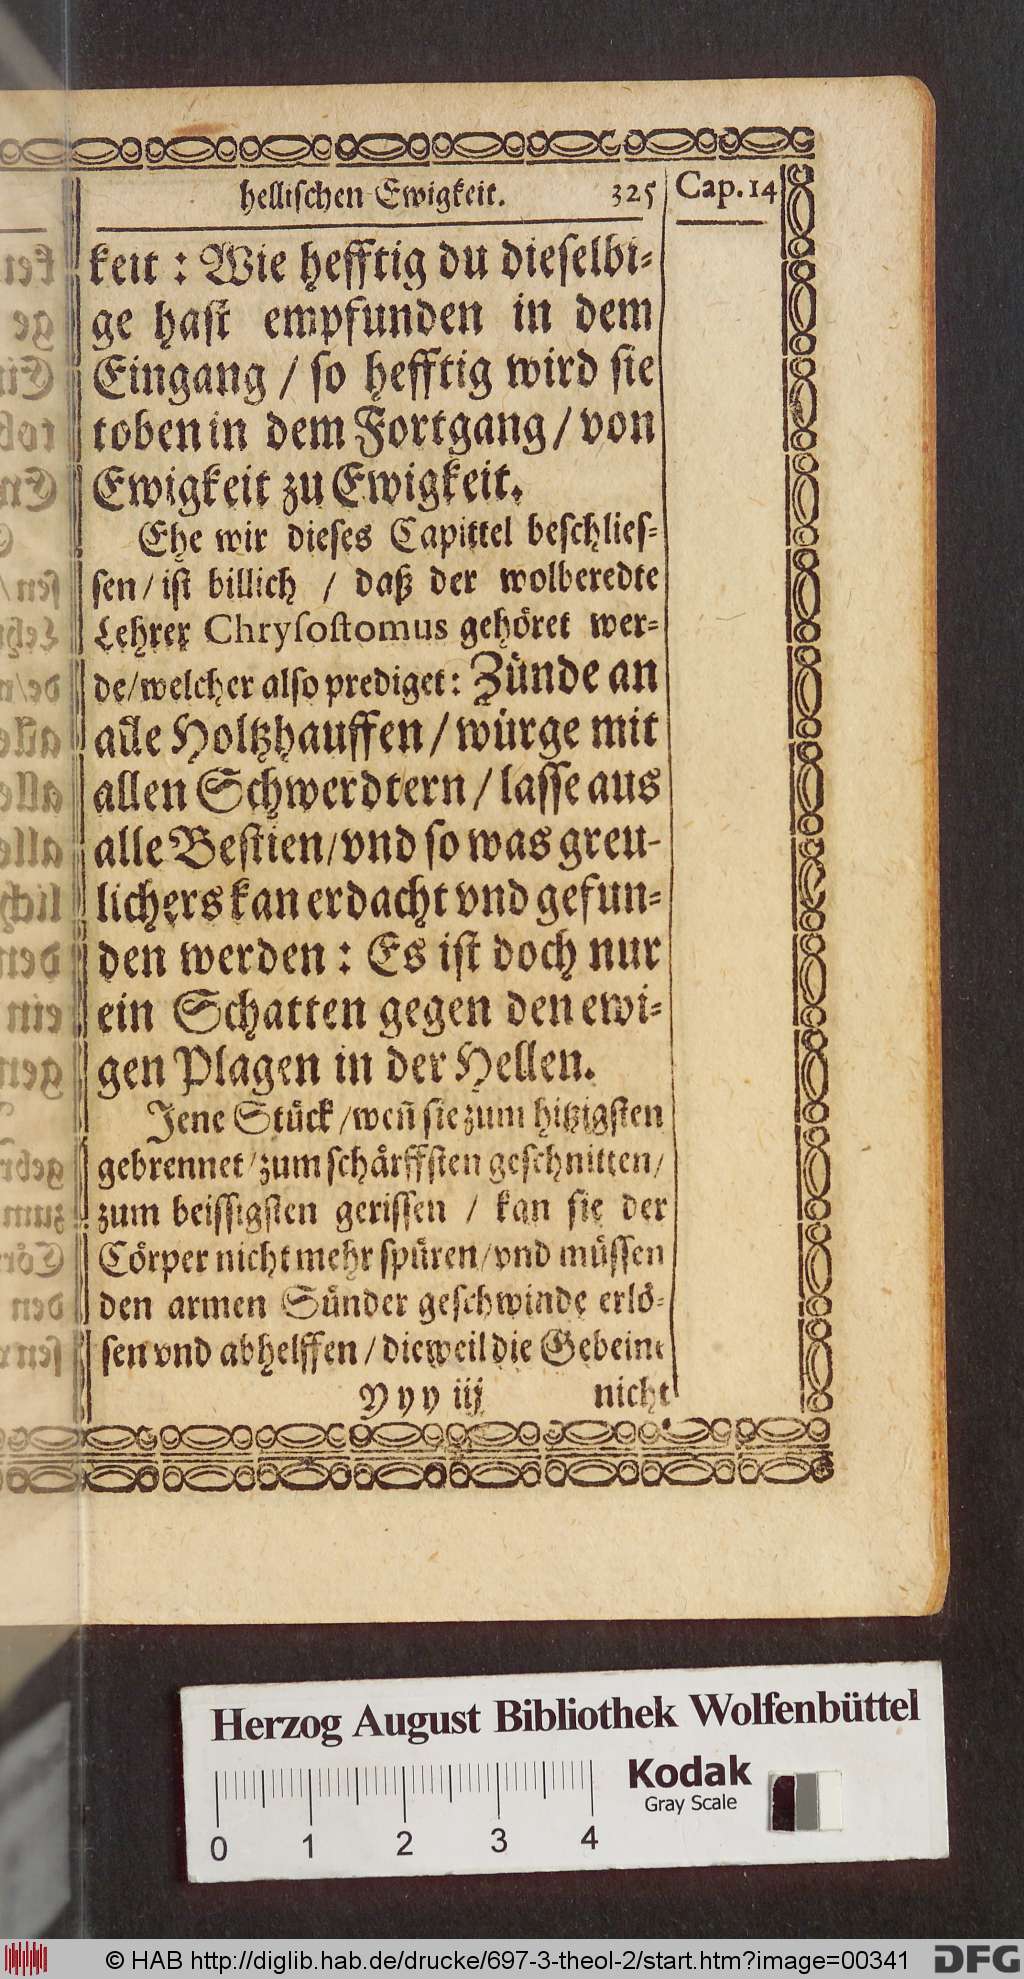 hellischen Ewigkeit. 325 Cap. 14
keit : Wie hefftig du dieselbi-
ge hast empfunden in dem
Eingang / so hefftig wird sie
toben in dem Fortgang / von
Ewigkeit zu Ewigkeit.
Ehe wir dieses Capittel beschlies-
sen / ist billich / daß der wolberedte
Lehrer Chrysostomus gehöret wer-
de / welcher also prediget : Zünde an
alle Holtzhauffen / würge mit
allen Schwerdtern / lasse aus
alle Bestien / vnd so was greu-
lichers kan erdacht vnd gefun-
den werden : Es ist doch nur
ein Schatten gegen den ewi-
gen Plagen in der Hellen.
Jene Stück / weñ sie zum hitzigsten
gebrennet / zum schärffsten geschnitten /
zum beissigsten gerissen / kan sie der
Cörper nicht mehr spüren / vnd müssen
den armen Sünder geschwinde erlö-
sen vnd abhelffen / dieweil die Gebeine
Y y y iij nicht
Herzog August Bibliothek Wolfenbüttel
Kodak
Gray Scale
0 1 2 3 4
© HAB http://diglib.hab.de/drucke/697-3-theol-2/start.htm?image=00341
DFG